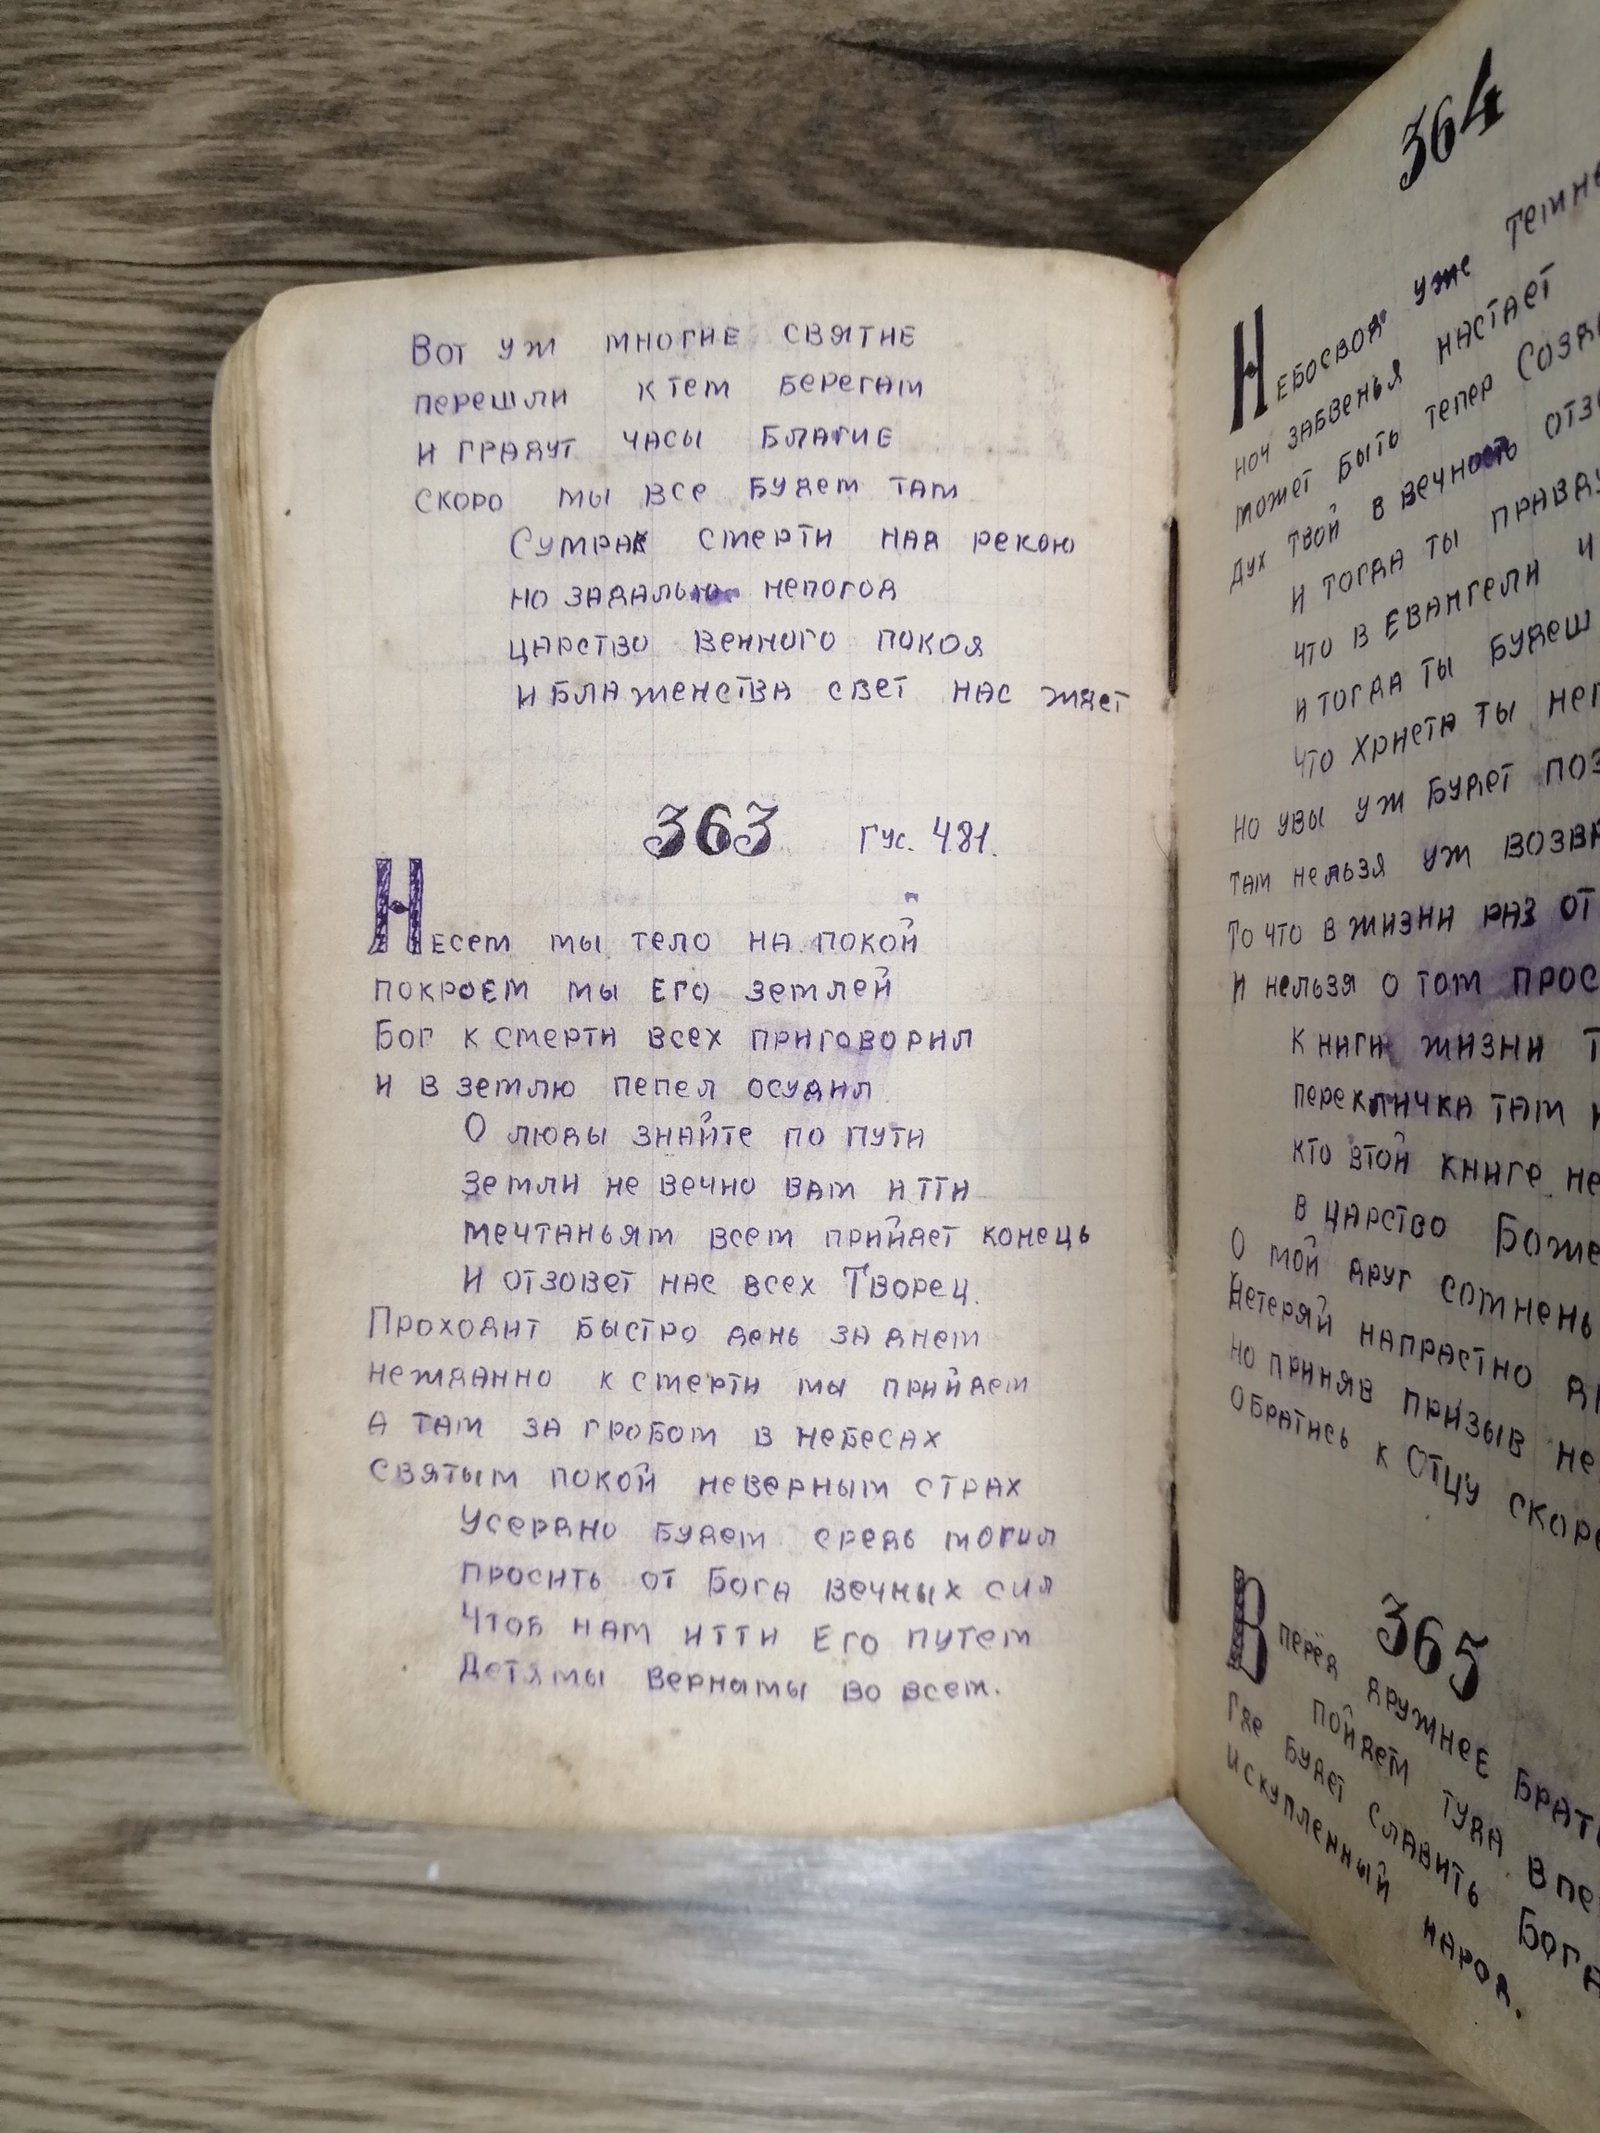 Вот уж многие святие
перешли ктем берегам
и грядут часы благие
скоро мы все будем там
Сумрак смерти над рекою
но задалью непогод
царство венного покоя
и блаженства свет нас ждет
363 Гус. 481.
Несем мы тело на покой
покроем мы Его землей
Бог к смерти всех приговорил
и в землю пепел осудил
О люды знайте по пути
земли не вечно вам итти
мечтаньям всем прийдет конець
И отзовет нас всех Творец.
Проходит быстро день за днем
нежданно к смерти мы прийдем
А там за гробом в небесах
святым покой неверным страх
Усердно будем средь могил
просить от Бога вечных сил
Чтоб нам итти Его путем
Детямы вернымы во всем.
364
Небосвод уже темне
ноч забвенья настает
может быть тепер Созда
дух твой в вечность отзо
и тогда ты правду
что в Евангели и
и тогда ты будеш
что Христа ты неп
Но увы уж будет поз
там нельзя уж возвр
То что в жизни раз от
И нельзя о том прос
Книги жизни т
перекличка там н
кто втой книге не
в царство Боже
О мой друг сомнень
Нетеряй напрастно др
но приняв призыв не
обратись к Отцу скоре
365
Вперёд дружнее брать
пойдем туда впе
Где будет славить Бога
искупленный народ.